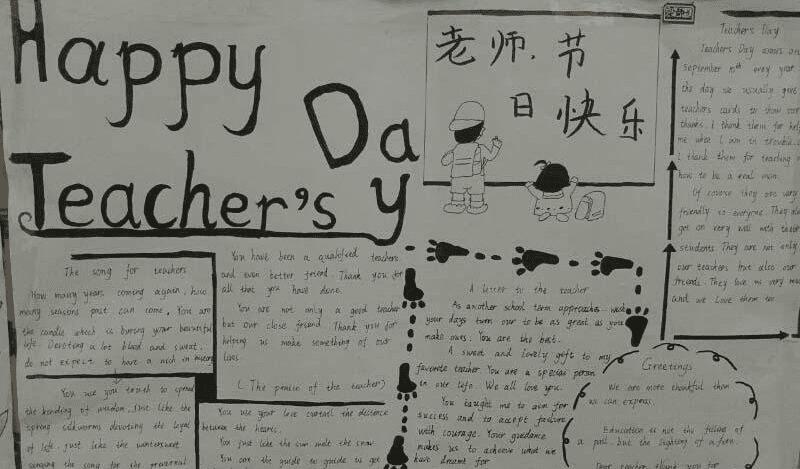 Happy
Teacher's
Day
老师节
日快乐
Teachers Day
Teachers Day comes on
september 10th every year
the day we usually give
teachers cards to show our
thanks. I thank them for hel
me when I am in trouble.
I thank them for teaching
how to be a real man.
Of course they are very
friendly to everyone. They al
get on very well with
students They are not only
our teachers but also our
friends. They love us very mu
and we Love them too
The song for teachers
How many years coming again, how
many seasons past can come, You are
the candle which is burning your beautiful
life. Devoting a lot blood and sweat,
do not expect to have a rich in
You use you to spread
the of wisdom, just like the
spring silkworms devoting the loyal
of life. just like the wintersweet
singing the song for the perennial
You have been a qualified teachers
and even better friend. Thank you for
all that you have done.
You are not only a good teacher
but our close friend. Thank you for
helping us make something of our
lives
(The praise of the teacher)
You use your love curtail the distance
between the hearts.
You just like the sun melt the snow
You are the guide to guide us get
A letter to the teacher
As another school term approaches. wish
your days turn our to be as great as you
make ours. You are the best.
A sweet and lovely gift to my
favorite teacher. You are a special person
in our life. We all love you.
You taught me to aim for
success and to accept failure
with courage. Your guidance
makes us to achieve what we
have dreamt for
Greetings
We are more thankful than
we can express.
Education is not the filling of
a pail. but the lighting of a fire.
Dear teacher, thank you for